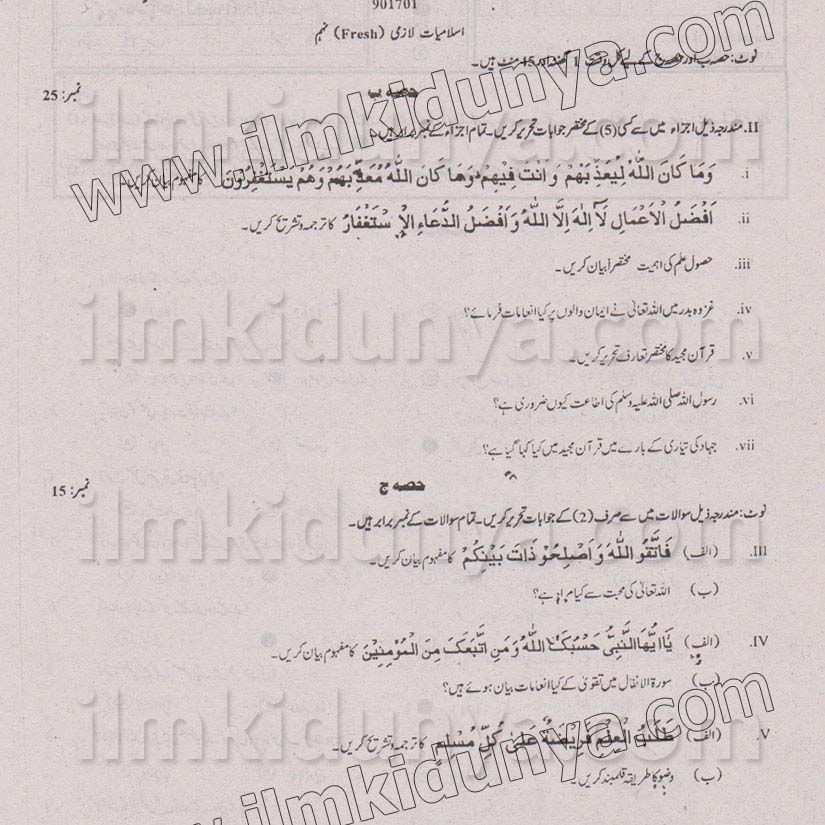 901701
اسلامیات لازمی (Fresh) نہم
نوٹ: حصہ ب اور حصہ ج کے لیے کل وقت 1 گھنٹہ اور 45 منٹ ہیں۔
حصہ ب
نمبر: 25
II. مندرجہ ذیل اجزاء میں سے کسی (5) کے مختصر جوابات تحریر کریں۔ تمام اجزاء کے نمبر برابر ہیں۔
i. وَمَا كَانَ اللّٰهُ لِيُعَذِّبَهُمْ وَاَنْتَ فِيْهِمْ وَمَا كَانَ اللّٰهُ مُعَذِّبَهُمْ وَهُمْ يَسْتَغْفِرُوْنَ کا مفہوم بیان کریں۔
ii. اَفْضَلُ الْاَعْمَالِ لَآ اِلٰهَ اِلَّا اللّٰهُ وَاَفْضَلُ الدُّعَاءِ الْاِسْتَغْفَارُ کا ترجمہ و تشریح کریں۔
iii. حصول علم کی اہمیت مختصراً بیان کریں۔
iv. غزوہ بدر میں اللہ تعالیٰ نے ایمان والوں پر کیا انعامات فرمائے؟
v. قرآن مجید کا مختصر تعارف تحریر کریں۔
vi. رسول اللہ صلی اللہ علیہ وسلم کی اطاعت کیوں ضروری ہے؟
vii. جہاد کی تیاری کے بارے میں قرآن مجید میں کیا کہا گیا ہے؟
حصہ ج
نمبر: 15
نوٹ: مندرجہ ذیل سوالات میں سے صرف (2) کے جوابات تحریر کریں۔ تمام سوالات کے نمبر برابر ہیں۔
III. (الف) فَاتَّقُو اللّٰهَ وَاَصْلِحُوْ ذَاتَ بَيْنِكُمْ کا مفہوم بیان کریں۔
(ب) اللہ تعالیٰ کی محبت سے کیا مراد ہے؟
IV. (الف) يَاَايُّهَا النَّبِىُّ حَسْبُكَ اللّٰهُ وَمَنِ اتَّبَعَكَ مِنَ الْمُؤْمِنِيْنَ کا مفہوم بیان کریں۔
(ب) سورۃ الانفال میں تقویٰ کے کیا انعامات بیان ہوئے ہیں؟
V. (الف) طَلَبُ الْعِلْمِ فَرِيْضَةٌ عَلىٰ كُلِّ مُسْلِمٍ کا ترجمہ و تشریح کریں۔
(ب) وضو کا طریقہ قلمبند کریں۔
www.ilmkidunya.com
ilmkidunya.com
ilmkidunya.com
ilmkidunya.com
ilmkidunya.com
www.ilmkidunya.com